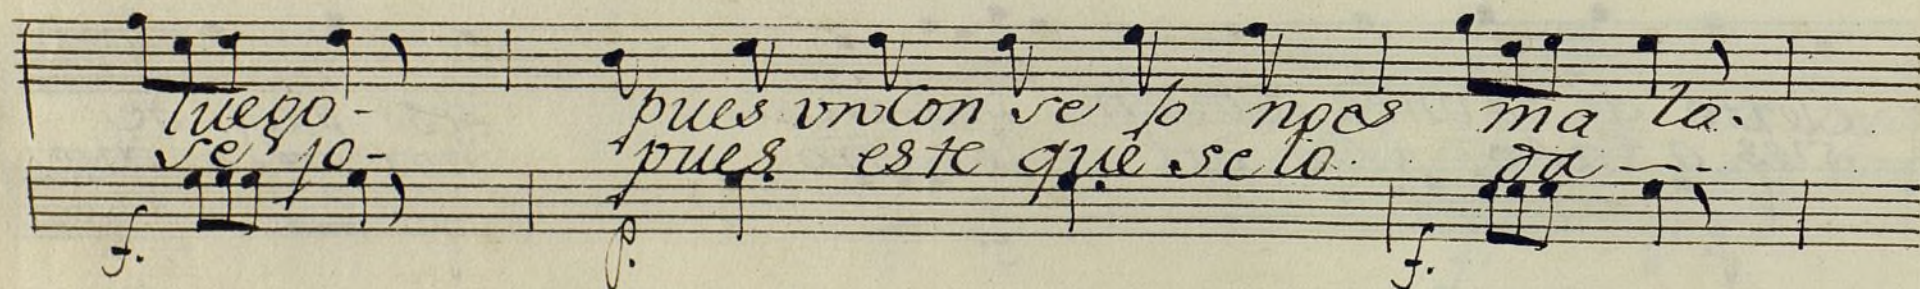 luego - pues vn Con se jo no es ma lo.
se jo - pues este que se lo da -
f. p. f.